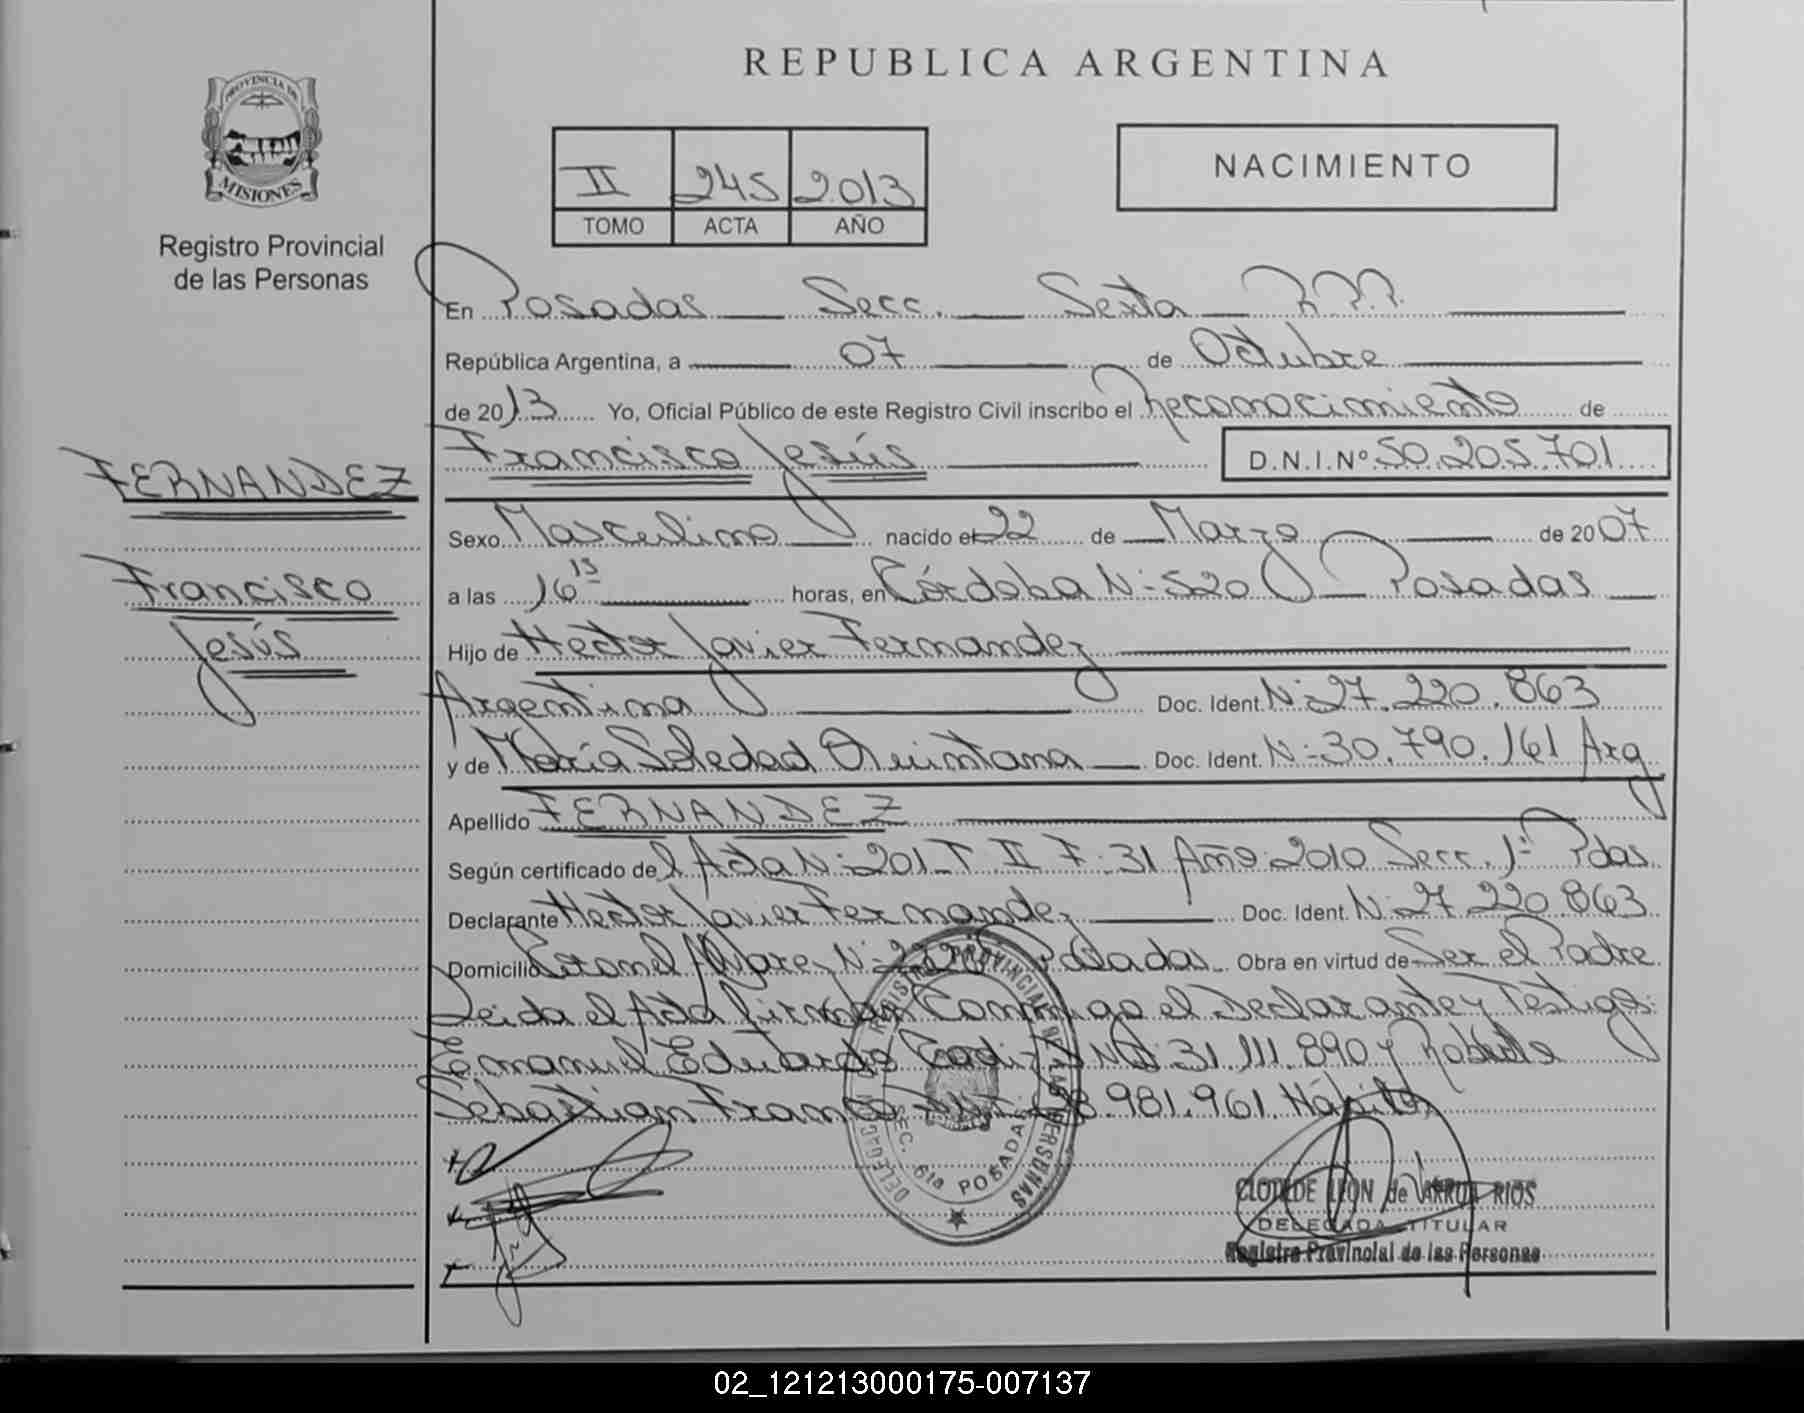 REPUBLICA ARGENTINA
PROVINCIA DE
MISIONES
Registro Provincial
de las Personas
II 245 2013
TOMO ACTA AÑO
NACIMIENTO
En Posadas Secc. Sexta R.P.P.
República Argentina, a 07 de Octubre
de 2013 Yo, Oficial Público de este Registro Civil inscribo el Reconocimiento de
Francisco Jesús D.N.I.Nº 50.205.701
FERNANDEZ
Francisco
Jesús
Sexo Masculino nacido el 22 de Marzo de 2007
a las 16 15 horas, en Córdoba Nº 520 Posadas
Hijo de Hector Javier Fernandez
Argentina Doc. Ident. Nº 27.220.863
y de María Soledad Quintana Doc. Ident. Nº 30.790.161 Arg
Apellido FERNANDEZ
Según certificado del Acta Nº 201 T II F 31 Año 2010 Secc. 1ª Pdas
Declarante Hector Javier Fernandez Doc. Ident. Nº 27.220.863
Domicilio Coronel Alvarez Nº Posadas Obra en virtud de Ser el Padre
Leida el Acta firman Conmigo el Declarante y Testigos:
Emanuel Eduardo 31.111.890 y
Sebastian Franco 28.981.961. Hábiles
SEC. 6ta POSADAS
CLOTILDE LEON de ARRUA RIOS
DELEGADA TITULAR
Registro Provincial de las Personas
02_121213000175-007137